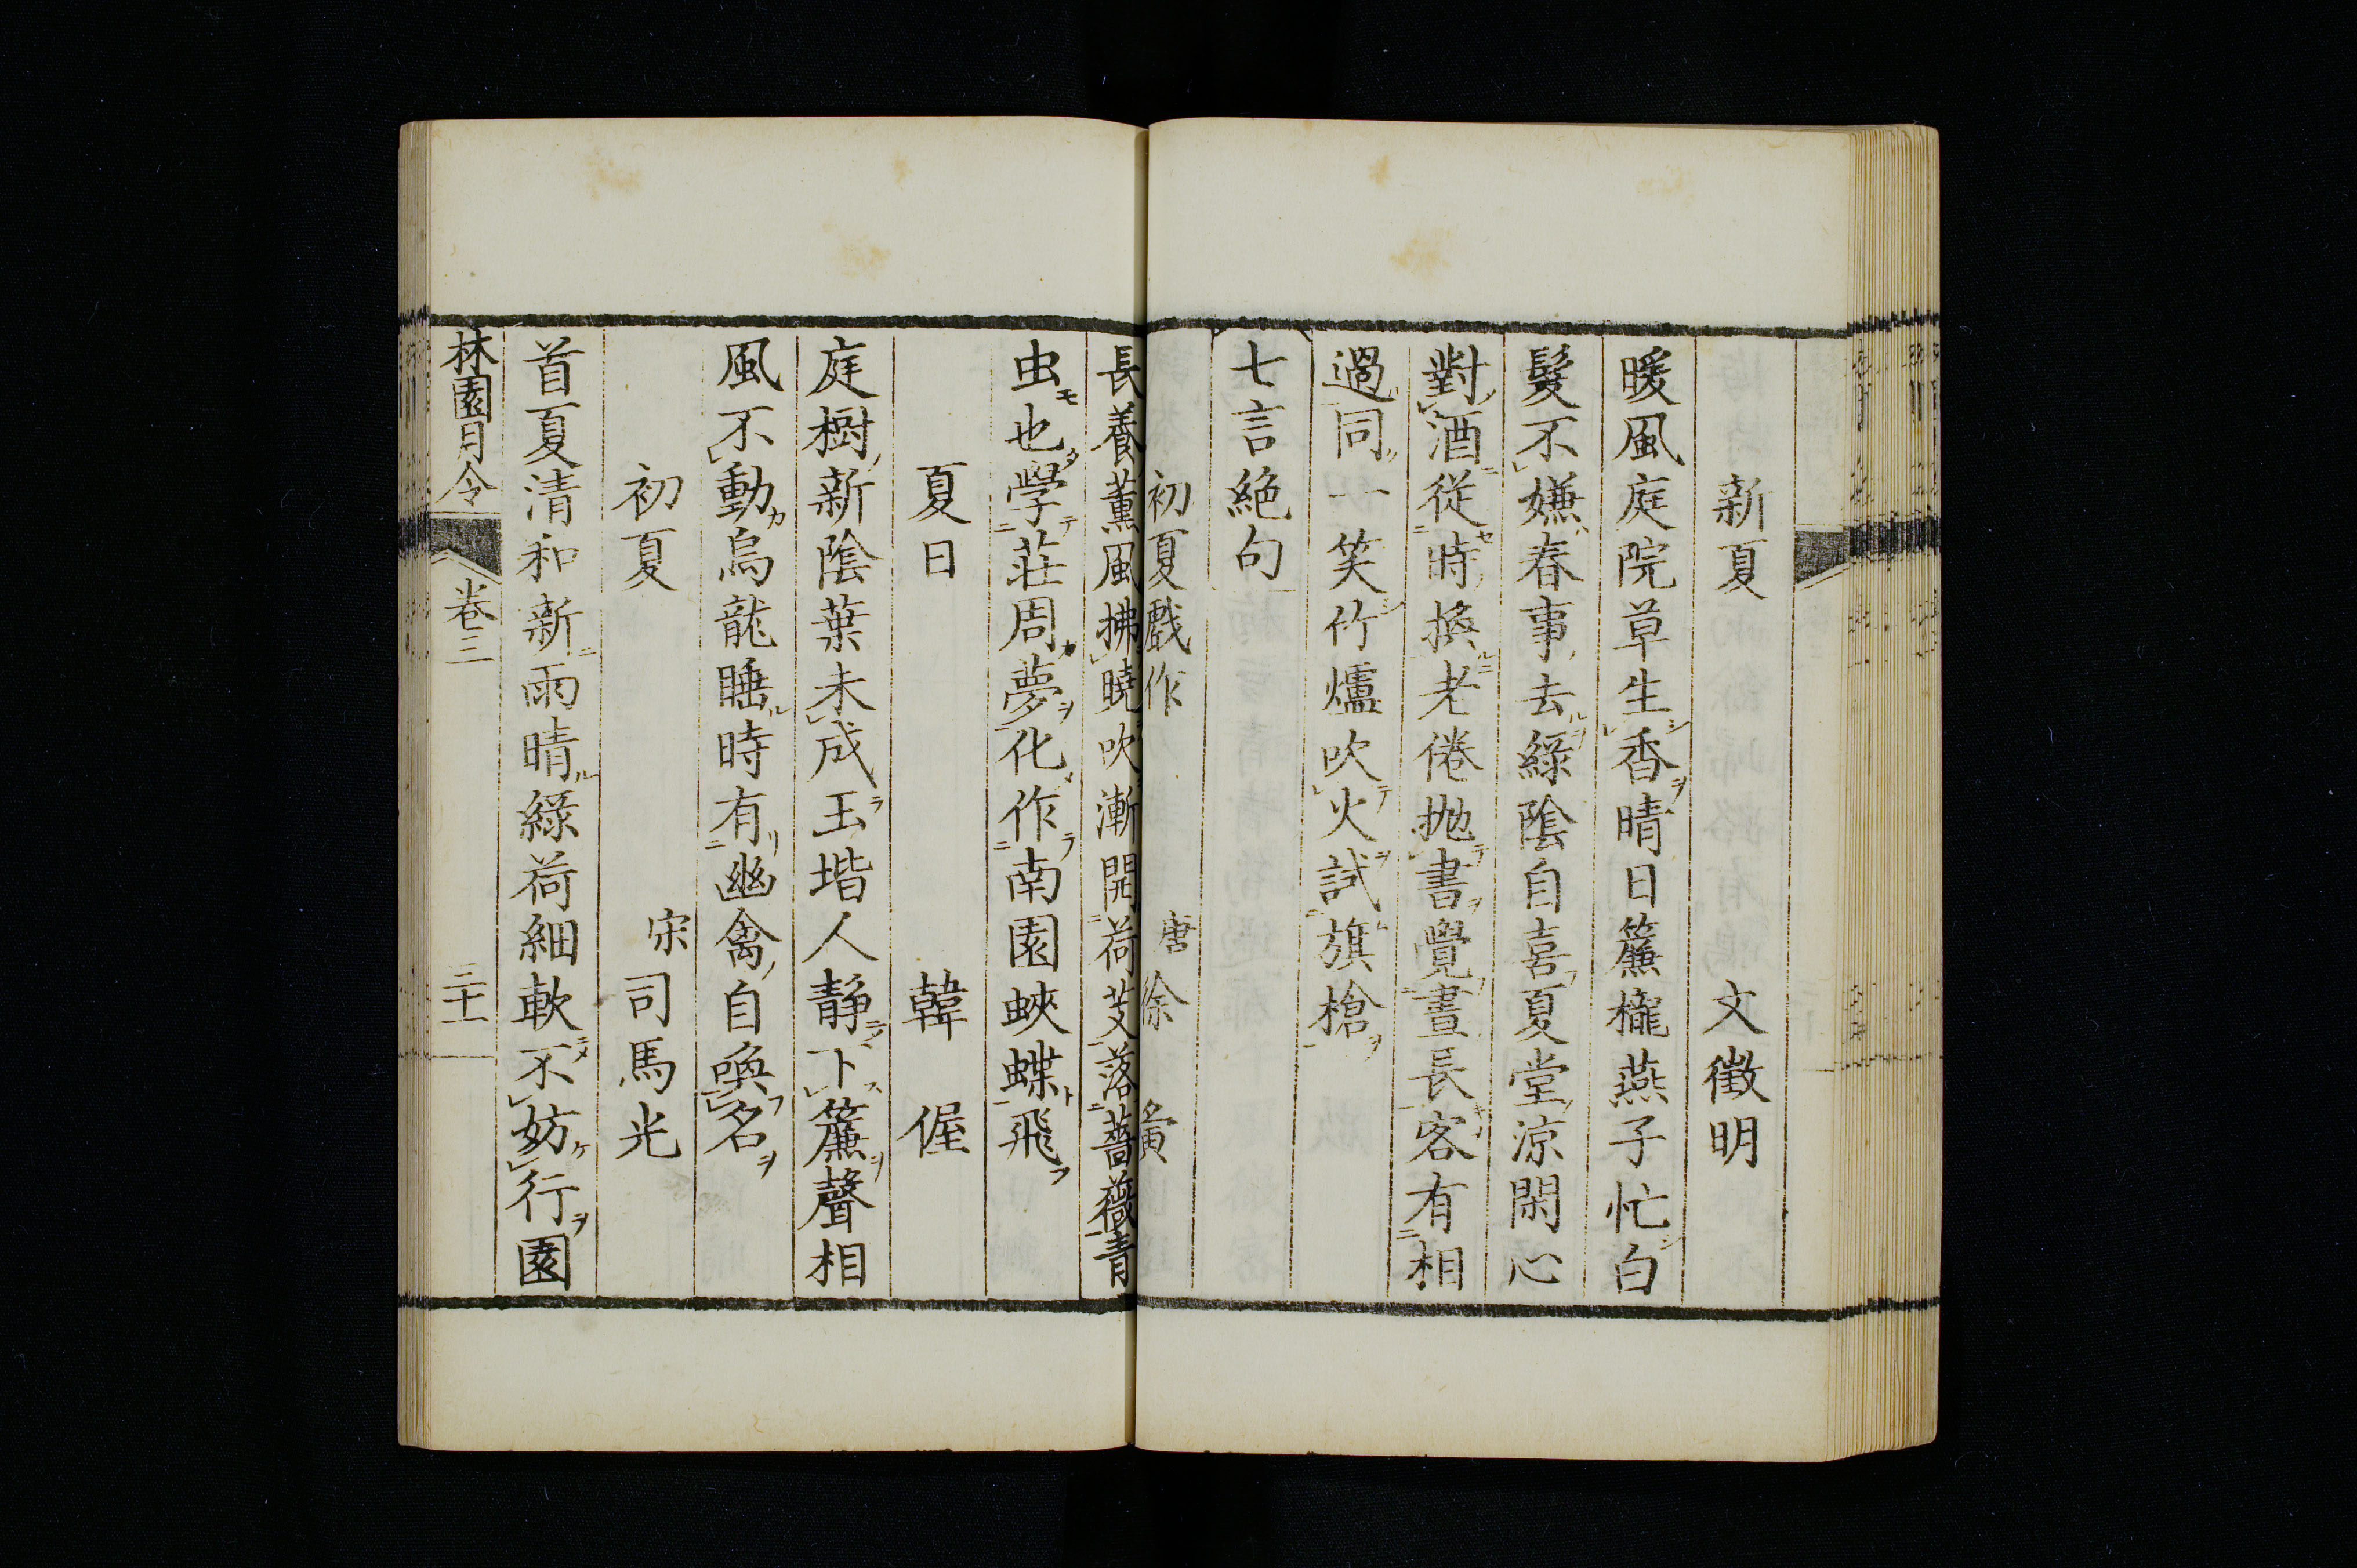 新夏　文徵明
暖風庭院草生香晴日簾櫳燕子忙白
髮不嫌春事去綠陰自喜夏堂凉閑心
對酒從時換老倦拋書覺晝長客有相
過同一笑竹爐吹火試旗槍
七言絶句
初夏戲作　唐徐夤
長養薰風拂曉吹漸開荷芰落薔薇青
虫也學莊周夢化作南園蛺蝶飛
夏日　韓偓
庭樹新陰葉未成玉堦人静下簾聲相
風不動烏龍睡時有幽禽自喚名
初夏　宋司馬光
首夏清和新雨晴綠荷細軟不妨行園
林園月令　卷三　二十一